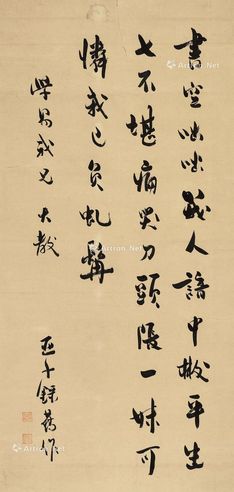 書空咄咄人語中散平生
七不堪痛哭刀頭張一妹可
憐我已負虬髯
學昜我兄 大教
亞子錄舊作
Artron.Net